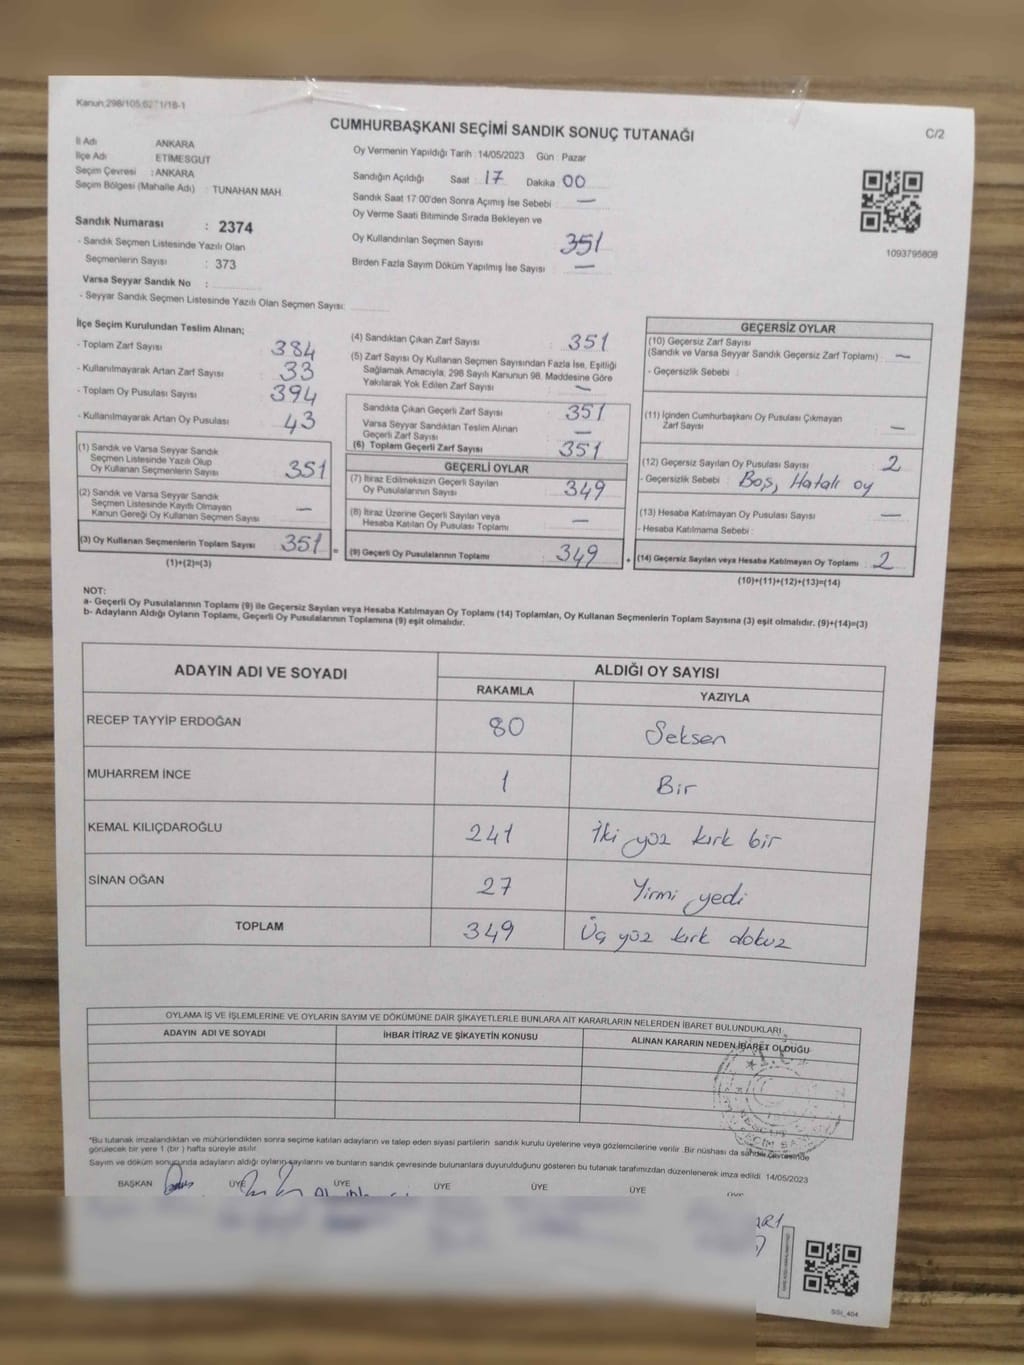 Kanun:298/105,62 1/18-1
CUMHURBAŞKANI SEÇİMİ SANDIK SONUÇ TUTANAĞI
C/2
İl Adı ANKARA
İlçe Adı ETİMESGUT
Seçim Çevresi : ANKARA
Seçim Bölgesi (Mahalle Adı) : TUNAHAN MAH.
Oy Vermenin Yapıldığı Tarih : 14/05/2023 Gün : Pazar
Sandığın Açıldığı Saat 17 Dakika 00
Sandık Saat 17:00'den Sonra Açımış İse Sebebi : —
Oy Verme Saati Bitiminde Sırada Bekleyen ve
Oy Kullandırılan Seçmen Sayısı 351
Birden Fazla Sayım Döküm Yapılmış İse Sayısı : —
1093795808
Sandık Numarası : 2374
- Sandık Seçmen Listesinde Yazılı Olan
Seçmenlerin Sayısı : 373
Varsa Seyyar Sandık No :
- Seyyar Sandık Seçmen Listesinde Yazılı Olan Seçmen Sayısı:
İlçe Seçim Kurulundan Teslim Alınan;
- Toplam Zarf Sayısı 384
- Kullanılmayarak Artan Zarf Sayısı 33
- Toplam Oy Pusulası Sayısı 394
- Kullanılmayarak Artan Oy Pusulası 43
(1) Sandık ve Varsa Seyyar Sandık
Seçmen Listesinde Yazılı Olup
Oy Kullanan Seçmenlerin Sayısı 351
(2) Sandık ve Varsa Seyyar Sandık
Seçmen Listesinde Kayıtlı Olmayan
Kanun Gereği Oy Kullanan Seçmen Sayısı —
(3) Oy Kullanan Seçmenlerin Toplam Sayısı 351 =
(1)+(2)=(3)
(4) Sandıktan Çıkan Zarf Sayısı : 351
(5) Zarf Sayısı Oy Kullanan Seçmen Sayısından Fazla İse, Eşitliği
Sağlamak Amacıyla, 298 Sayılı Kanunun 98. Maddesine Göre
Yakılarak Yok Edilen Zarf Sayısı —
Sandıkta Çıkan Geçerli Zarf Sayısı 351
Varsa Seyyar Sandıktan Teslim Alınan
Geçerli Zarf Sayısı —
(6) Toplam Geçerli Zarf Sayısı 351
GEÇERLİ OYLAR
(7) İtiraz Edilmeksizin Geçerli Sayılan
Oy Pusulalarının Sayısı 349
(8) İtiraz Üzerine Geçerli Sayılan veya
Hesaba Katılan Oy Pusulası Toplamı —
(9) Geçerli Oy Pusulalarının Toplamı 349 +
GEÇERSİZ OYLAR
(10) Geçersiz Zarf Sayısı
(Sandık ve Varsa Seyyar Sandık Geçersiz Zarf Toplamı) —
- Geçersizlik Sebebi :
(11) İçinden Cumhurbaşkanı Oy Pusulası Çıkmayan
Zarf Sayısı —
(12) Geçersiz Sayılan Oy Pusulası Sayısı 2
- Geçersizlik Sebebi : Boş, Hatalı oy
(13) Hesaba Katılmayan Oy Pusulası Sayısı —
- Hesaba Katılmama Sebebi :
(14) Geçersiz Sayılan veya Hesaba Katılmayan Oy Toplamı 2
(10)+(11)+(12)+(13)=(14)
NOT:
a- Geçerli Oy Pusulalarının Toplamı (9) ile Geçersiz Sayılan veya Hesaba Katılmayan Oy Toplamı (14) Toplamları, Oy Kullanan Seçmenlerin Toplam Sayısına (3) eşit olmalıdır. (9)+(14)=(3)
b- Adayların Aldığı Oyların Toplamı, Geçerli Oy Pusulalarının Toplamına (9) eşit olmalıdır.
ADAYIN ADI VE SOYADI ALDIĞI OY SAYISI
RAKAMLA YAZIYLA
RECEP TAYYİP ERDOĞAN 80 Seksen
MUHARREM İNCE 1 Bir
KEMAL KILIÇDAROĞLU 241 İki yüz kırk bir
SİNAN OĞAN 27 Yirmi yedi
TOPLAM 349 Üç yüz kırk dokuz
OYLAMA İŞ VE İŞLEMLERİNE VE OYLARIN SAYIM VE DÖKÜMÜNE DAİR ŞİKAYETLERLE BUNLARA AİT KARARLARIN NELERDEN İBARET BULUNDUKLARI
ADAYIN ADI VE SOYADI İHBAR İTİRAZ VE ŞİKAYETİN KONUSU ALINAN KARARIN NEDEN İBARET OLDUĞU
*Bu tutanak imzalandıktan ve mühürlendikten sonra seçime katılan adayların ve talep eden siyasi partilerin sandık kurulu üyelerine veya gözlemcilerine verilir. Bir nüshası da sandık çevresinde
görülecek bir yere 1 (bir) hafta süreyle asılır.
Sayım ve döküm sonucunda adayların aldığı oyların sayılarını ve bunların sandık çevresinde bulunanlara duyurulduğunu gösteren bu tutanak tarafımızdan düzenlenerek imza edildi. 14/05/2023
BAŞKAN ÜYE ÜYE ÜYE ÜYE ÜYE ÜYE
SSI_404